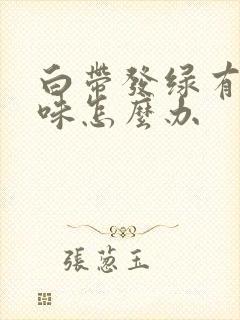 白帶發绿有
味怎麼办
張蔥玉